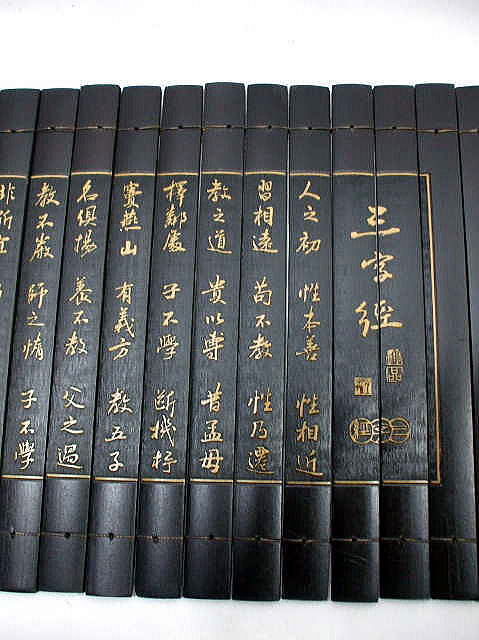 三字經
人之初 性本善 性相近
習相遠 苟不教 性乃遷
教之道 貴以專 昔孟母
擇鄰處 子不學 斷機杼
竇燕山 有義方 教五子
名俱揚 養不教 父之過
教不嚴 師之惰 子不學
非所宜